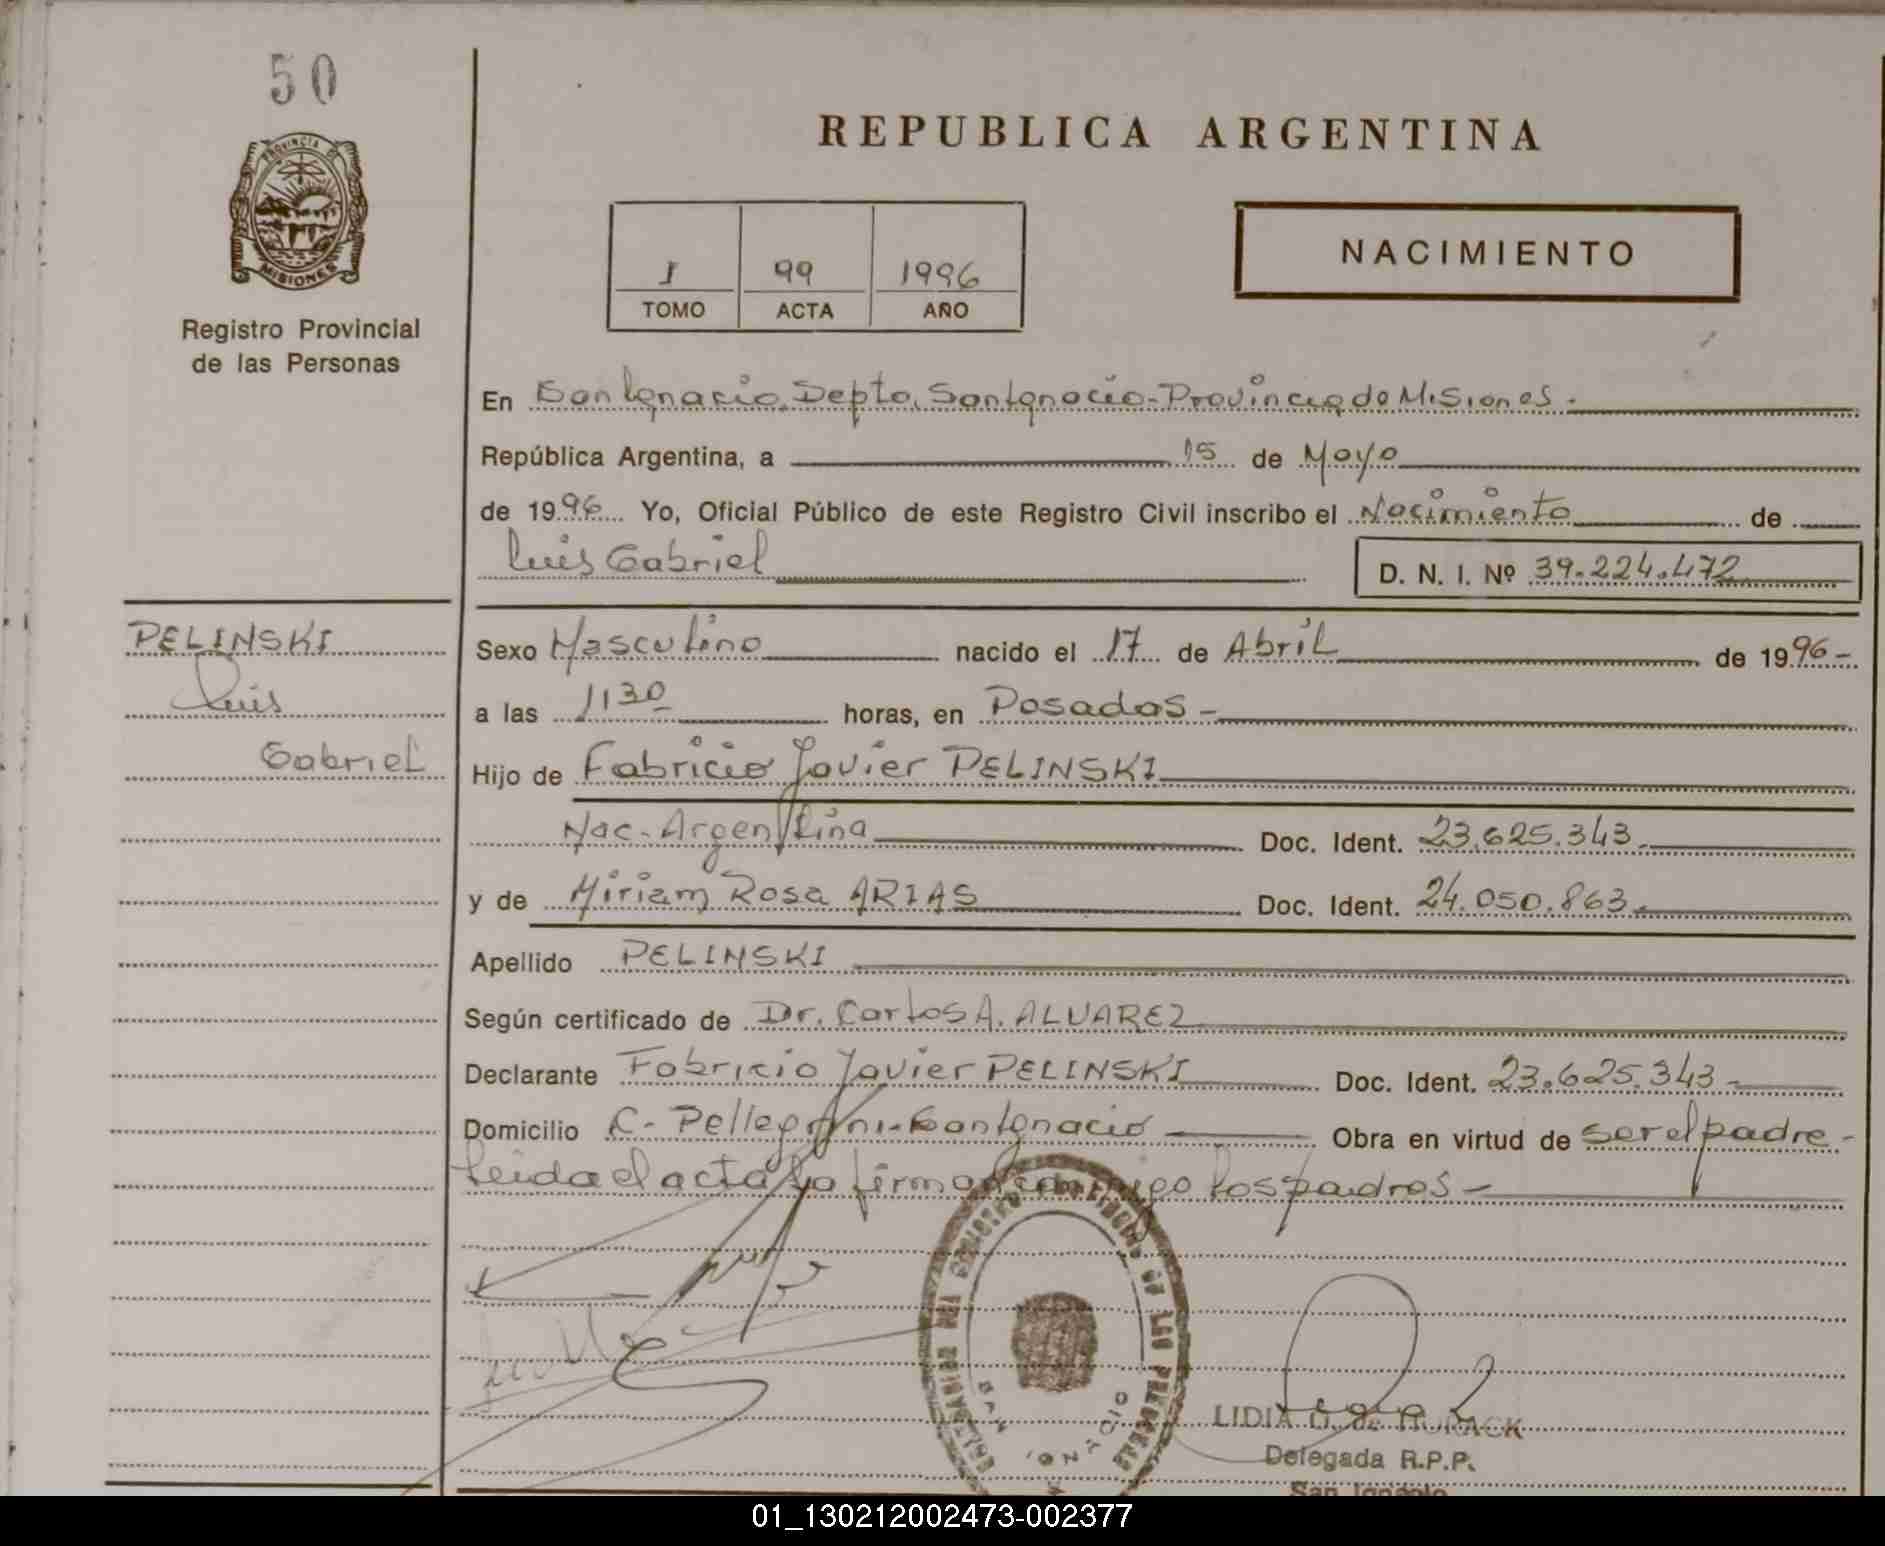 50
PROVINCIA DE
MISIONES
Registro Provincial
de las Personas
REPUBLICA ARGENTINA
I 99 1996
TOMO ACTA AÑO
NACIMIENTO
En San Ignacio, Depto, San Ignacio - Provincia de Misiones.
República Argentina, a 15 de Mayo
de 1996 Yo, Oficial Público de este Registro Civil inscribo el Nacimiento de
Luis Gabriel D. N. I. Nº 39.224.472
PELINSKI
Luis
Gabriel
Sexo Masculino nacido el 17 de Abril de 1996-
a las 1130 horas, en Posadas -
Hijo de Fabricio Javier PELINSKI
Nac. Argentina Doc. Ident. 23.625.343.
y de Miriam Rosa ARIAS Doc. Ident. 24.050.863.
Apellido PELINSKI
Según certificado de Dr. Carlos A. ALVAREZ
Declarante Fabricio Javier PELINSKI Doc. Ident. 23.625.343-
Domicilio C. Pellegrini - San Ignacio Obra en virtud de ser el padre-
Leida el acta la firman conmigo los padres -
SAN IGNACIO
LIDIA de HORACK
Delegada R.P.P.
San Ignacio
01_130212002473-002377